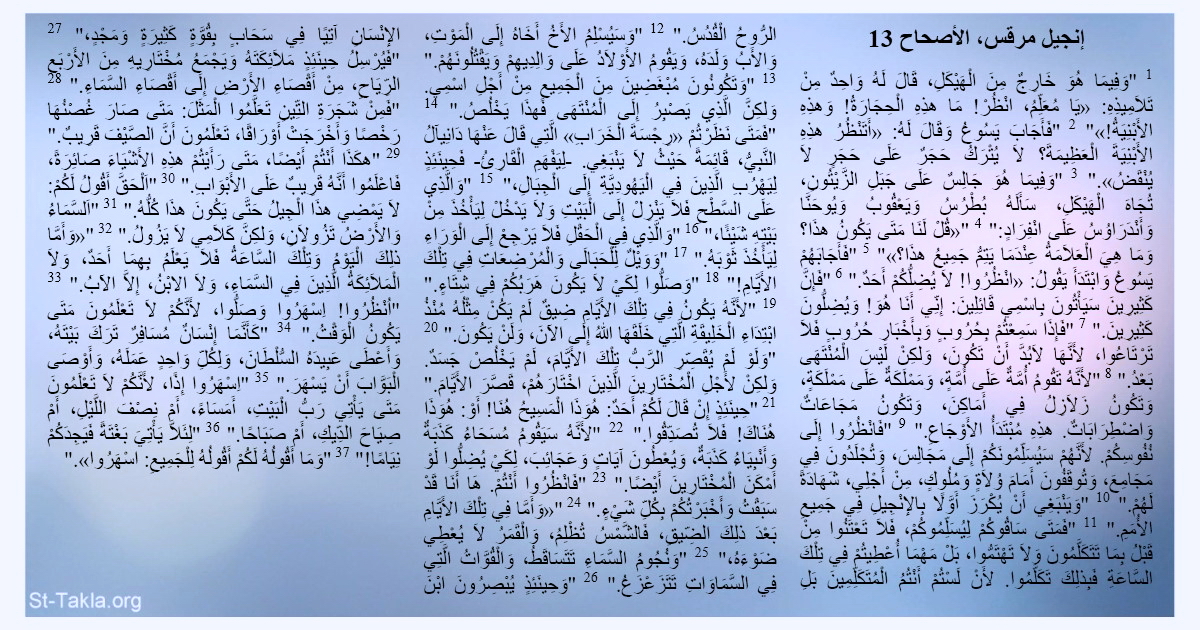 إنجيل مرقس، الأصحاح 13
1 "وَفِيمَا هُوَ خَارِجٌ مِنَ الْهَيْكَلِ، قَالَ لَهُ وَاحِدٌ مِنْ
تَلاَمِيذِهِ: «يَا مُعَلِّمُ، انْظُرْ! مَا هذِهِ الْحِجَارَةُ! وَهذِهِ
الأَبْنِيَةُ!»" 2 "فَأَجَابَ يَسُوعُ وَقَالَ لَهُ: «أَتَنْظُرُ هذِهِ
الأَبْنِيَةَ الْعَظِيمَةَ؟ لاَ يُتْرَكُ حَجَرٌ عَلَى حَجَرٍ لاَ
يُنْقَضُ»." 3 "وَفِيمَا هُوَ جَالِسٌ عَلَى جَبَلِ الزَّيْتُونِ،
تُجَاهَ الْهَيْكَلِ، سَأَلَهُ بُطْرُسُ وَيَعْقُوبُ وَيُوحَنَّا
وَأَنْدَرَاوُسُ عَلَى انْفِرَادٍ:" 4 "«قُلْ لَنَا مَتَى يَكُونُ هذَا؟
وَمَا هِيَ الْعَلاَمَةُ عِنْدَمَا يَتِمُّ جَمِيعُ هذَا؟»" 5 "فَأَجَابَهُمْ
يَسُوعُ وَابْتَدَأَ يَقُولُ: «انْظُرُوا! لاَ يُضِلُّكُمْ أَحَدٌ." 6 "فَإِنَّ
كَثِيرِينَ سَيَأْتُونَ بِاسْمِي قَائِلِينَ: إِنِّي أَنَا هُوَ! وَيُضِلُّونَ
كَثِيرِينَ." 7 "فَإِذَا سَمِعْتُمْ بِحُرُوبٍ وَبِأَخْبَارِ حُرُوبٍ فَلاَ
تَرْتَاعُوا، لأَنَّهَا لاَبُدَّ أَنْ تَكُونَ، وَلكِنْ لَيْسَ الْمُنْتَهَى
بَعْدُ." 8 "لأَنَّهُ تَقُومُ أُمَّةٌ عَلَى أُمَّةٍ، وَمَمْلَكَةٌ عَلَى مَمْلَكَةٍ،
وَتَكُونُ زَلاَزِلُ فِي أَمَاكِنَ، وَتَكُونُ مَجَاعَاتٌ
وَاضْطِرَابَاتٌ. هذِهِ مُبْتَدَأُ الأَوْجَاعِ." 9 "فَانْظُرُوا إِلَى
نُفُوسِكُمْ. لأَنَّهُمْ سَيُسَلِّمُونَكُمْ إِلَى مَجَالِسَ، وَتُجْلَدُونَ فِي
مَجَامِعَ، وَتُوقَفُونَ أَمَامَ وُلاَةٍ وَمُلُوكٍ، مِنْ أَجْلِي، شَهَادَةً
لَهُمْ." 10 "وَيَنْبَغِي أَنْ يُكْرَزَ أَوَّلاً بِالإِنْجِيلِ فِي جَمِيعِ
الأُمَمِ." 11 "فَمَتَى سَاقُوكُمْ لِيُسَلِّمُوكُمْ، فَلاَ تَعْتَنُوا مِنْ
قَبْلُ بِمَا تَتَكَلَّمُونَ وَلاَ تَهْتَمُّوا، بَلْ مَهْمَا أُعْطِيتُمْ فِي تِلْكَ
السَّاعَةِ فَبِذلِكَ تَكَلَّمُوا. لأَنْ لَسْتُمْ أَنْتُمُ الْمُتَكَلِّمِينَ بَلِ
الرُّوحُ الْقُدُسُ." 12 "وَسَيُسْلِمُ الأَخُ أَخَاهُ إِلَى الْمَوْتِ،
وَالأَبُ وَلَدَهُ، وَيَقُومُ الأَوْلاَدُ عَلَى وَالِدِيهِمْ وَيَقْتُلُونَهُمْ."
13 "وَتَكُونُونَ مُبْغَضِينَ مِنَ الْجَمِيعِ مِنْ أَجْلِ اسْمِي.
وَلكِنَّ الَّذِي يَصْبِرُ إِلَى الْمُنْتَهَى فَهذَا يَخْلُصُ." 14
"فَمَتَى نَظَرْتُمْ «رِجْسَةَ الْخَرَابِ» الَّتِي قَالَ عَنْهَا دَانِيآلُ
النَّبِيُّ، قَائِمَةً حَيْثُ لاَ يَنْبَغِي. -لِيَفْهَمِ الْقَارِئُ- فَحِينَئِذٍ
لِيَهْرُبِ الَّذِينَ فِي الْيَهُودِيَّةِ إِلَى الْجِبَالِ،" 15 "وَالَّذِي
عَلَى السَّطْحِ فَلاَ يَنْزِلْ إِلَى الْبَيْتِ وَلاَ يَدْخُلْ لِيَأْخُذَ مِنْ
بَيْتِهِ شَيْئًا،" 16 "وَالَّذِي فِي الْحَقْلِ فَلاَ يَرْجِعْ إِلَى الْوَرَاءِ
لِيَأْخُذَ ثَوْبَهُ." 17 "وَوَيْلٌ لِلْحَبَالَى وَالْمُرْضِعَاتِ فِي تِلْكَ
الأَيَّامِ!" 18 "وَصَلُّوا لِكَيْ لاَ يَكُونَ هَرَبُكُمْ فِي شِتَاءٍ."
19 "لأَنَّهُ يَكُونُ فِي تِلْكَ الأَيَّامِ ضِيقٌ لَمْ يَكُنْ مِثْلُهُ مُنْذُ
ابْتِدَاءِ الْخَلِيقَةِ الَّتِي خَلَقَهَا اللهُ إِلَى الآنَ، وَلَنْ يَكُونَ." 20
"وَلَوْ لَمْ يُقَصِّرِ الرَّبُّ تِلْكَ الأَيَّامَ، لَمْ يَخْلُصْ جَسَدٌ.
وَلكِنْ لأَجْلِ الْمُخْتَارِينَ الَّذِينَ اخْتَارَهُمْ، قَصَّرَ الأَيَّامَ."
21 "حِينَئِذٍ إِنْ قَالَ لَكُمْ أَحَدٌ: هُوَذَا الْمَسِيحُ هُنَا! أَوْ: هُوَذَا
هُنَاكَ! فَلاَ تُصَدِّقُوا." 22 "لأَنَّهُ سَيَقُومُ مُسَحَاءُ كَذَبَةٌ
وَأَنْبِيَاءُ كَذَبَةٌ، وَيُعْطُونَ آيَاتٍ وَعَجَائِبَ، لِكَيْ يُضِلُّوا لَوْ
أَمْكَنَ الْمُخْتَارِينَ أَيْضًا." 23 "فَانْظُرُوا أَنْتُمْ. هَا أَنَا قَدْ
سَبَقْتُ وَأَخْبَرْتُكُمْ بِكُلِّ شَيْءٍ." 24 "«وَأَمَّا فِي تِلْكَ الأَيَّامِ
بَعْدَ ذلِكَ الضِّيقِ، فَالشَّمْسُ تُظْلِمُ، وَالْقَمَرُ لاَ يُعْطِي
ضَوْءَهُ،" 25 "وَنُجُومُ السَّمَاءِ تَتَسَاقَطُ، وَالْقُوَّاتُ الَّتِي
فِي السَّمَاوَاتِ تَتَزَعْزَعُ." 26 "وَحِينَئِذٍ يُبْصِرُونَ ابْنَ
الإِنْسَانِ آتِيًا فِي سَحَابٍ بِقُوَّةٍ كَثِيرَةٍ وَمَجْدٍ،" 27
"فَيُرْسِلُ حِينَئِذٍ مَلاَئِكَتَهُ وَيَجْمَعُ مُخْتَارِيهِ مِنَ الأَرْبَعِ
الرِّيَاحِ، مِنْ أَقْصَاءِ الأَرْضِ إِلَى أَقْصَاءِ السَّمَاءِ." 28
"فَمِنْ شَجَرَةِ التِّينِ تَعَلَّمُوا الْمَثَلَ: مَتَى صَارَ غُصْنُهَا
رَخْصًا وَأَخْرَجَتْ أَوْرَاقًا، تَعْلَمُونَ أَنَّ الصَّيْفَ قَرِيبٌ."
29 "هكَذَا أَنْتُمْ أَيْضًا، مَتَى رَأَيْتُمْ هذِهِ الأَشْيَاءَ صَائِرَةً،
فَاعْلَمُوا أَنَّهُ قَرِيبٌ عَلَى الأَبْوَابِ." 30 "اَلْحَقَّ أَقُولُ لَكُمْ:
لاَ يَمْضِي هذَا الْجِيلُ حَتَّى يَكُونَ هذَا كُلُّهُ." 31 "اَلسَّمَاءُ
وَالأَرْضُ تَزُولاَنِ، وَلكِنَّ كَلاَمِي لاَ يَزُولُ." 32 "«وَأَمَّا
ذلِكَ الْيَوْمُ وَتِلْكَ السَّاعَةُ فَلاَ يَعْلَمُ بِهِمَا أَحَدٌ، وَلاَ
الْمَلاَئِكَةُ الَّذِينَ فِي السَّمَاءِ، وَلاَ الابْنُ، إِلاَّ الآبُ." 33
"اُنْظُرُوا! اِسْهَرُوا وَصَلُّوا، لأَنَّكُمْ لاَ تَعْلَمُونَ مَتَى
يَكُونُ الْوَقْتُ." 34 "كَأَنَّمَا إِنْسَانٌ مُسَافِرٌ تَرَكَ بَيْتَهُ،
وَأَعْطَى عَبِيدَهُ السُّلْطَانَ، وَلِكُلِّ وَاحِدٍ عَمَلَهُ، وَأَوْصَى
الْبَوَّابَ أَنْ يَسْهَرَ." 35 "اِسْهَرُوا إِذًا، لأَنَّكُمْ لاَ تَعْلَمُونَ
مَتَى يَأْتِي رَبُّ الْبَيْتِ، أَمَسَاءً، أَمْ نِصْفَ اللَّيْلِ، أَمْ
صِيَاحَ الدِّيكِ، أَمْ صَبَاحًا." 36 "لِئَلاَّ يَأْتِيَ بَغْتَةً فَيَجِدَكُمْ
نِيَامًا!" 37 "وَمَا أَقُولُهُ لَكُمْ أَقُولُهُ لِلْجَمِيعِ: اسْهَرُوا»."
St-Takla.org